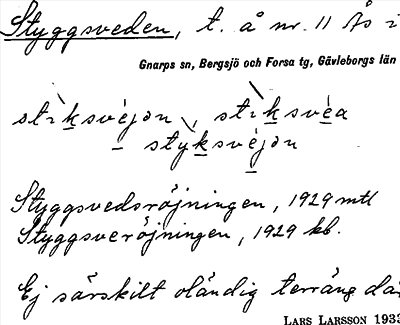 Styggsveden, t. å nr. 11 Ås i
Gnarps sn, Bergsjö och Forsa tg, Gävleborgs län
stìksvéjɔn, stìksvéa
– stỳksvéjɔn
Styggsvedsröjningen, 1929 mtl
Styggsveröjningen, 1929 kb.
Ej särskilt oländig terräng där
LARS LARSSON 1933